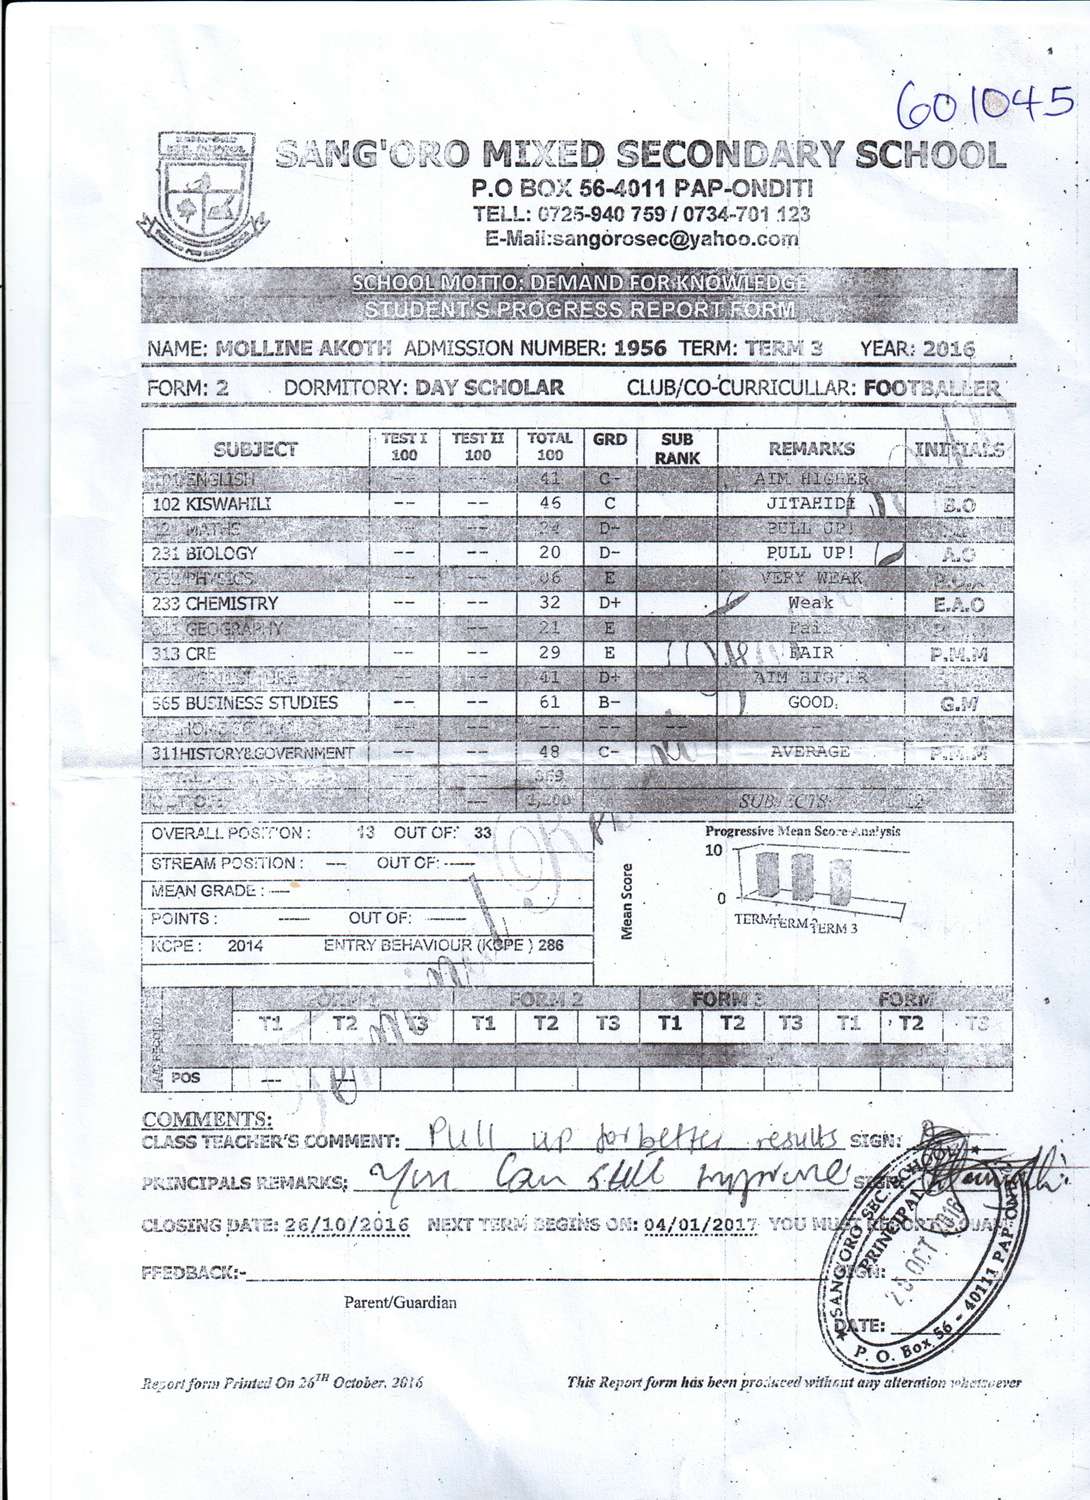 601045
SANG'ORO MIXED SECONDARY SCHOOL
P.O BOX 56-4011 PAP-ONDITI
TELL: 0725-940 759 / 0734-701 123
E-Mail:sangorosec@yahoo.com
SCHOOL MOTTO: DEMAND FOR KNOWLEDGE
STUDENT'S PROGRESS REPORT FORM
NAME: MOLLINE AKOTH ADMISSION NUMBER: 1956 TERM: TERM 3 YEAR: 2016
FORM: 2 DORMITORY: DAY SCHOLAR CLUB/CO-CURRICULLAR: FOOTBALLER
SUBJECT TEST I 100 TEST II 100 TOTAL 100 GRD SUB RANK REMARKS INITIALS
101 ENGLISH -- -- 41 C- AIM HIGHER
102 KISWAHILI -- -- 46 C JITAHIDI B.O
MATHS -- -- 24 D- PULL UP!
231 BIOLOGY -- -- 20 D- PULL UP! A.O
232 PHYSICS -- -- 06 E VERY WEAK
233 CHEMISTRY -- -- 32 D+ Weak E.A.O
GEOGRAPHY -- -- 21 E
313 CRE -- -- 29 E FAIR P.M.M
-- -- 41 D+ AIM HIGHER
565 BUSINESS STUDIES -- -- 61 B- GOOD. G.M
-- -- -- -- --
311HISTORY&GOVERNMENT -- -- 48 C- AVERAGE P.M.M
-- -- 369
OUT OF: -- 1,200 SUBJECTS: 12
OVERALL POSITION : 13 OUT OF: 33
STREAM POSITION : --- OUT OF: -----
MEAN GRADE : ---
POINTS : ----- OUT OF: ------
KCPE : 2014 ENTRY BEHAVIOUR (KCPE ) 286
Progressive Mean Score Analysis
Mean Score
10
0
TERM 1 TERM 2 TERM 3
FORM 1 FORM 2 FORM 3 FORM
T1 T2 T3 T1 T2 T3 T1 T2 T3 T1 T2 T3
POS --- ---
COMMENTS:
CLASS TEACHER'S COMMENT: Pull up for better results SIGN:
PRINCIPALS REMARKS: You Can still improve SIGN:
CLOSING DATE: 26/10/2016 NEXT TERM BEGINS ON: 04/01/2017 YOU MUST
FFEDBACK:- SIGN:
Parent/Guardian
DATE:
SANG'ORO SEC. SCHOOL
PRINCIPAL
OCT 2016
P. O. Box 56 - 40111 PAP-ONDITI
Report form Printed On 26TH October, 2016 This Report form has been produced without any alteration whatsoever